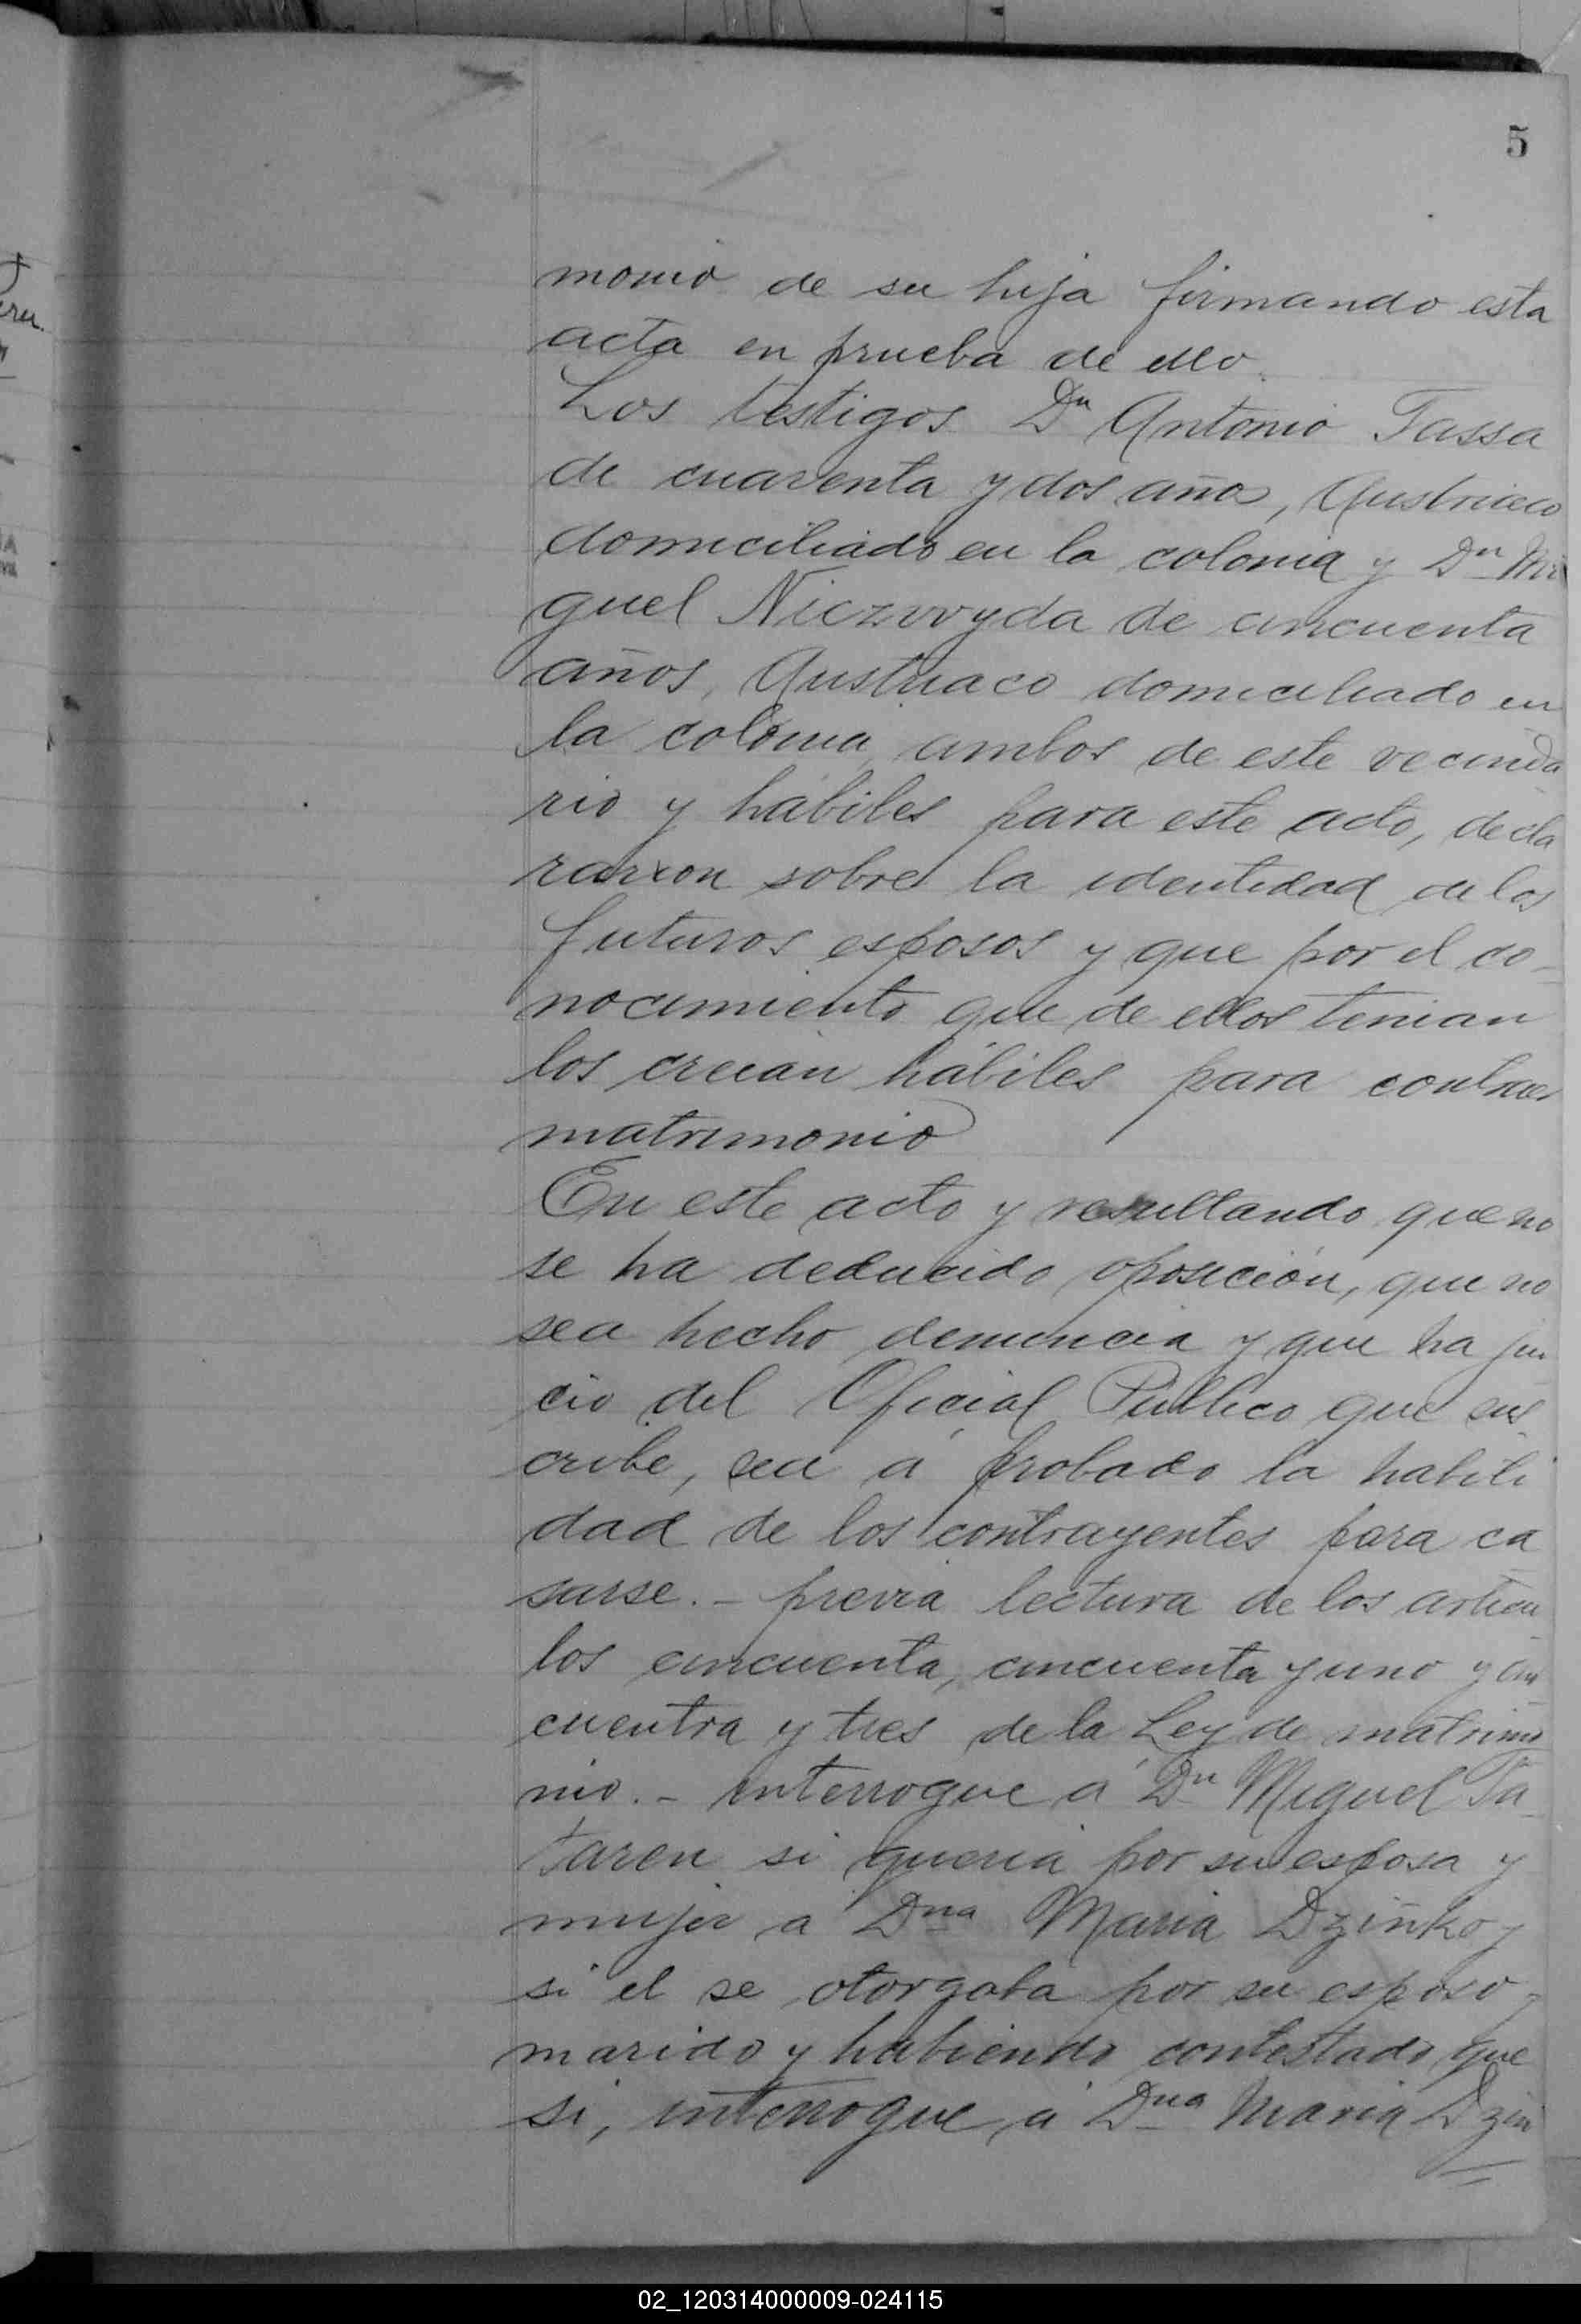 5
monio de su hija firmando esta
acta en prueba de ello.
Los testigos Dn Antonio Tassa
de cuarenta y dos años, Austriaco
domiciliado en la colonia y Dn Mi
guel Niezwyda de cincuenta
años, Austriaco domiciliado en
la colonia, ambos de este vecinda
rio y hábiles para este acto, decla
rarron sobre la identidad de los
futuros esposos y que por el co-
nocimiento que de ellos tenian
los creian hábiles para contraer
matrimonio
En este acto y resultando que no
se ha deducido oposición, que no
sea hecho denuncia y que ha jui
cio del Oficial Público que sus
cribe, sea á probado la habili
dad de los contrayentes para ca
sarse. - previa lectura de los articu
los cincuenta, cincuenta y uno y cin
cuentra y tres de la Ley de matrimo
nio. - interrogue á Dn Miguel Ta-
taren si queria por su esposa y
mujer a Dna Maria Dzinko y
si el se otorgaba por su esposo y
marido y habiendo contestado que
si, interrogue á Dna Maria Dzin
02_120314000009-024115